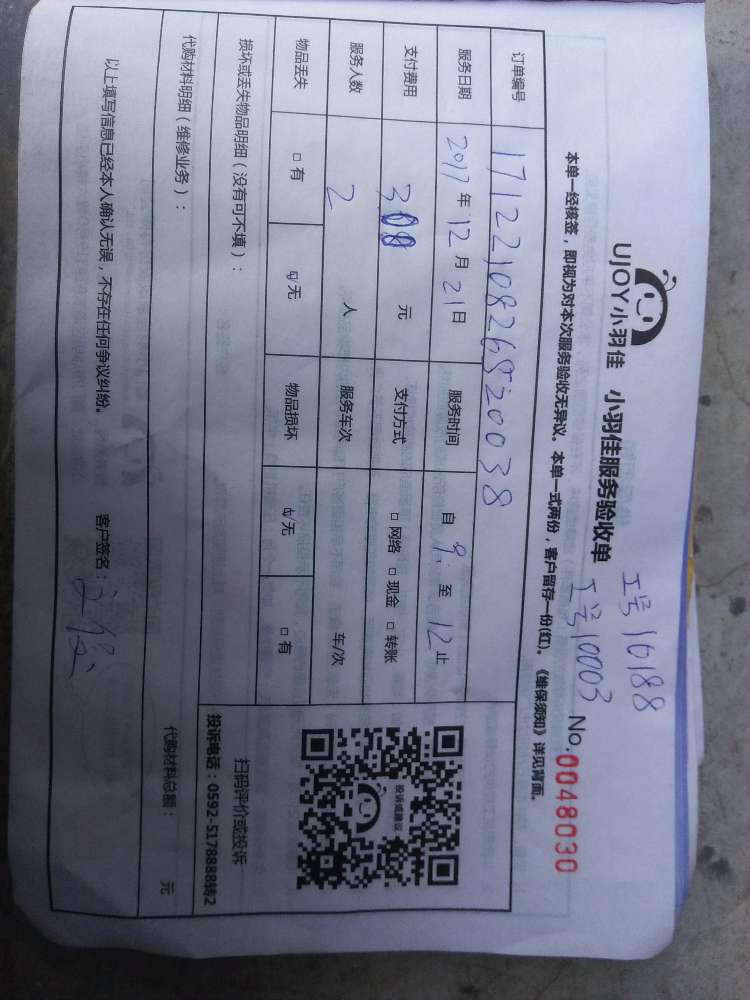 UJOY小羽佳 小羽佳服务验收单
工号16188
工号10003
No.0048030
本单一经核签，即视为对本次服务验收无异议。本单一式两份，客户留存一份(红)。《维保须知》详见背面。
订单编号 17122108268520038
服务日期 2017年12月21日 服务时间 自9:至12止
支付费用 300元 支付方式 □网络 □现金 □转账
服务人数 2人 服务车次 车/次
物品丢失 □有 ☑无 物品损坏 ☑无 □有
损坏或丢失物品明细（没有可不填）：
投诉或建议
扫码评价或投诉
投诉电话：0592-5178888转2
代购材料明细（维修业务）： 代购材料总额： 元
以上填写信息已经本人确认无误，不存在任何争议纠纷。 客户签名：